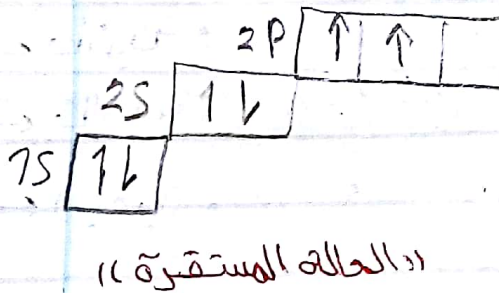 2P ↑ ↑
2S 1 ⇂
1S 1 ⇂
((الحالة المستقرة))